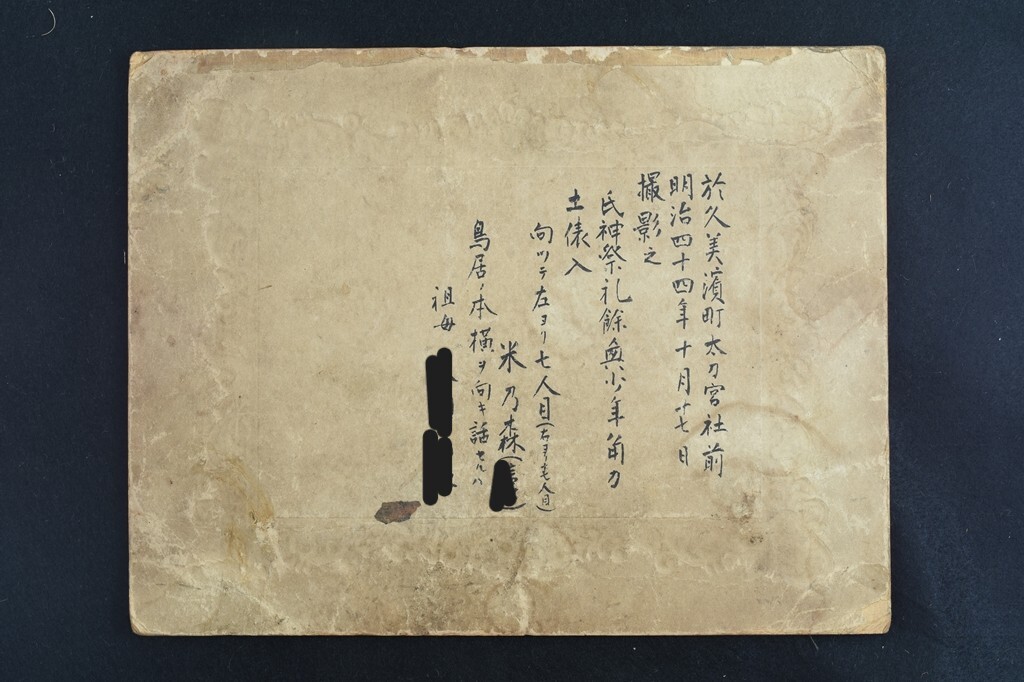 於久美濱町太刀宮社前
明治四十四年十月十七日
撮影之
氏神祭礼餘興少年角力
土俵入
向ツテ左ヨリ七人目(右ヨリモ七人目)
米乃森(
鳥居ノ本横ヲ向キ話セルハ
祖母